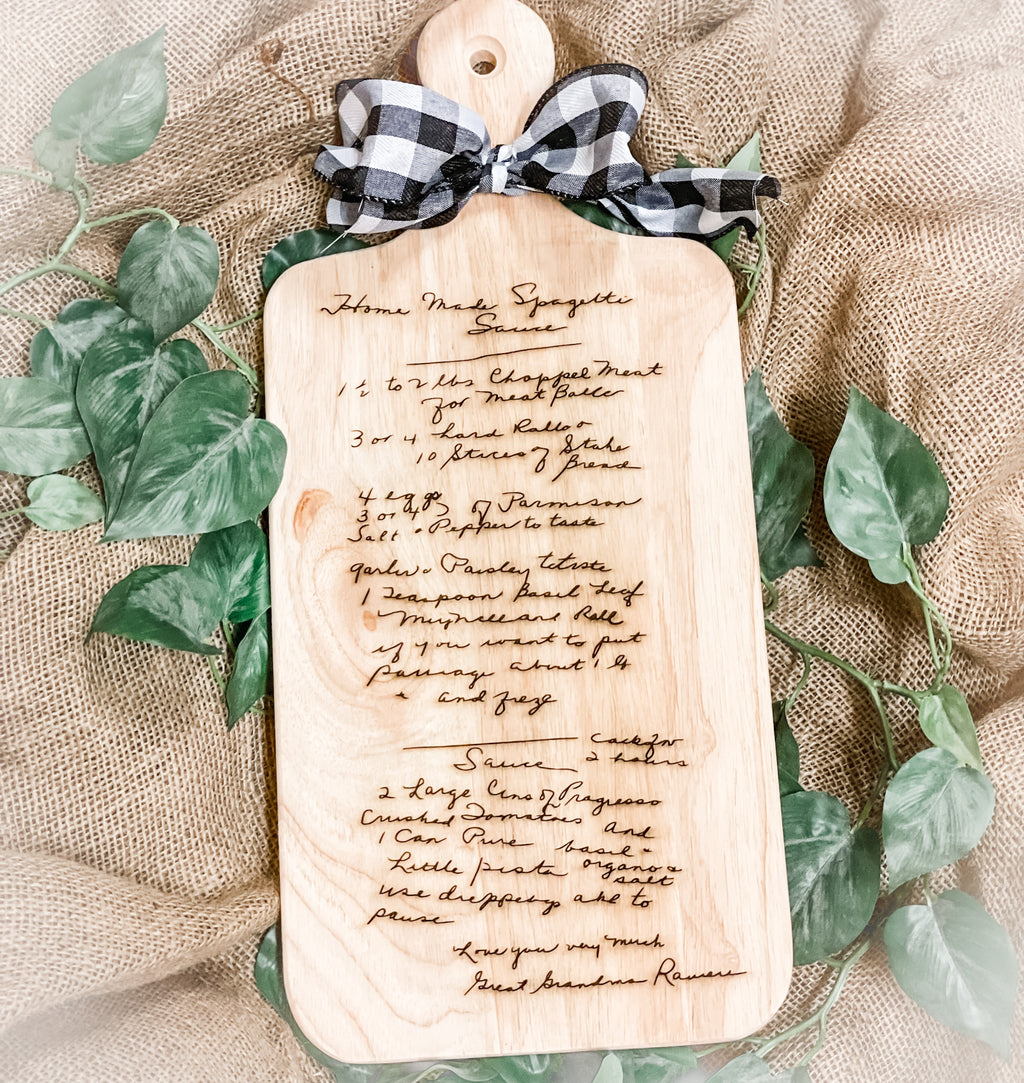 Home Made Spagetti
Sauce
1 ½ to 2 lbs Chopped Meat
for Meat Balls
3 or 4 hard Rolls or
10 Slices of Stake
Bread
4 eggs
3 or 4 of Parmison
Salt + Pepper to taste
garlic + Paisley to taste
1 Teaspoon Basil Leaf
and Roll
if you want to put
sausage about 1 lb
* and freze
Cook for
Sauce 2 hours
2 Large Cans of Progresso
Crushed Tomatoes and
1 Can Pure basil +
Little pista organo +
salt
use dreppings add to
sause
Love you very Much
Great Grandma